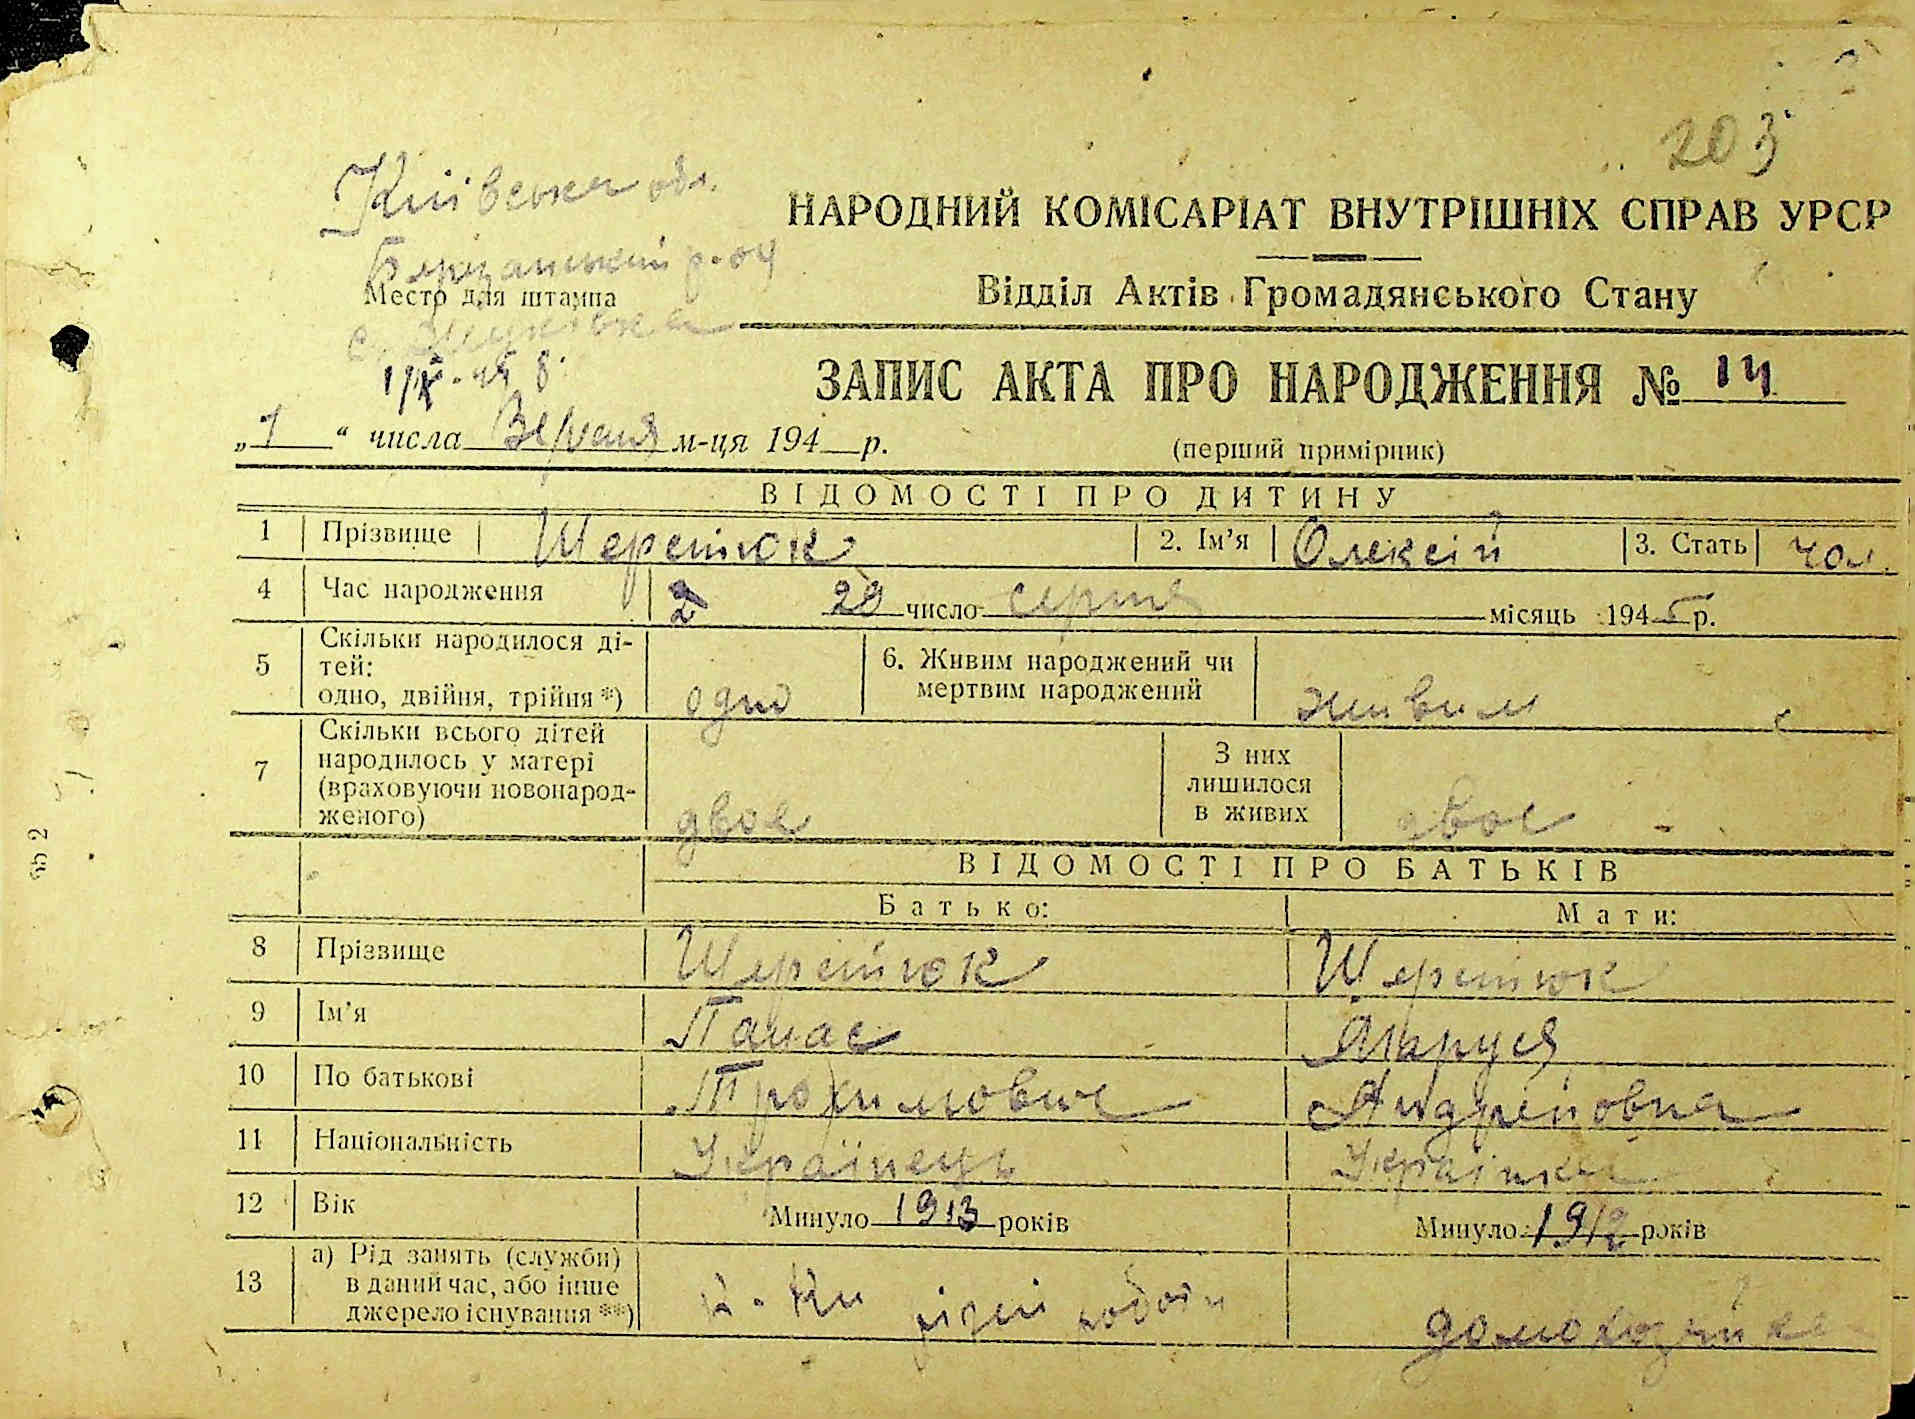 203
Київська обл.
НАРОДНИЙ КОМІСАРІАТ ВНУТРІШНІХ СПРАВ УРСР
р-он
Место для штампа
Відділ Актів Громадянського Стану
с. Жуковка
1/IX-45 р.
ЗАПИС АКТА ПРО НАРОДЖЕННЯ № 14
„1“ числа Вересня м-ця 194 р.
(перший примірник)
ВІДОМОСТІ ПРО ДИТИНУ
1 Прізвище Шеретюк 2. Ім'я Олексій 3. Стать чол.
4 Час народження 29 число серпня місяць 1945 р.
5 Скільки народилося ді-
тей:
одно, двійня, трійня *) одно 6. Живим народжений чи
мертвим народжений живим
7 Скільки всього дітей
народилось у матері
(враховуючи новонарод-
женого) двое З них
лишилося
в живих двое
ВІДОМОСТІ ПРО БАТЬКІВ
Батько: Мати:
8 Прізвище Шеретюк Шеретюк
9 Ім'я Панас Маруся
10 По батькові Трохимович Андрейовна
11 Національність Українець Українка
12 Вік Минуло 1913 років Минуло 1912 років
13 а) Рід занять (служби)
в даний час, або інше
джерело існування **) різні робот домохозяйка